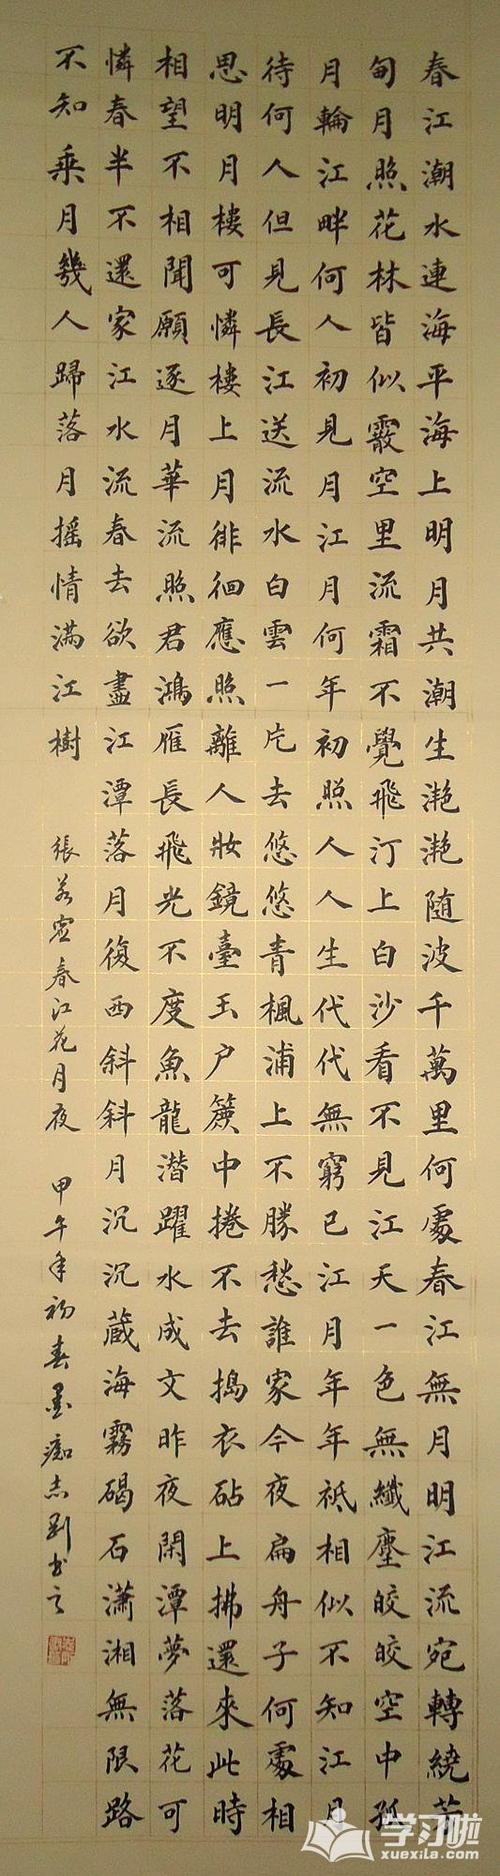 春江潮水連海平海上明月共潮生灧灧随波千萬里何處春江無月明江流宛轉繞芳
甸月照花林皆似霰空里流霜不覺飛汀上白沙看不見江天一色無纖塵皎皎空中孤
月輪江畔何人初見月江月何年初照人人生代代無窮已江月年年祗相似不知江月
待何人但見長江送流水白雲一片去悠悠青楓浦上不勝愁誰家今夜扁舟子何處相
思明月樓可憐樓上月徘徊應照離人妝鏡臺玉户簾中捲不去搗衣砧上拂還來此時
相望不相聞願逐月華流照君鴻雁長飛光不度魚龍潛躍水成文昨夜閑潭夢落花可
憐春半不還家江水流春去欲盡江潭落月復西斜斜月沉沉蔵海霧碣石潇湘無限路
不知乘月幾人歸落月摇情满江樹
張若虚春江花月夜 甲午年初春墨痴志刚书之
学习啦
xuexila.com